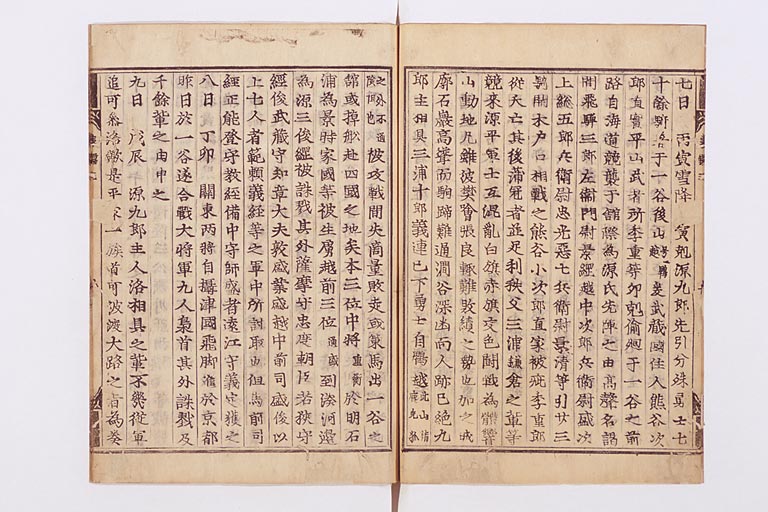 七日 丙寅雪降 寅剋源九郎先引分殊勇士七
十餘騎着于一谷後山 爰武蔵國住人熊谷次
郎直實平山武者所季重等卯剋偷廻于一谷之前
路自海道競襲于舘際為源氏先陣之由高聲名謁
間飛騨三郎左衛門尉景綱越中次郎兵衛尉盛次
上総五郎兵衛尉忠光悪七兵衛尉景清等引廿三
騎開木戸口相戰之熊谷小次郎直家被疵季重郎
從夭亡其後蒲冠者並足利秩父三浦鎌倉之輩等
競来源平軍士互混乱白旗赤旗交色鬪戰為躰響
山動地凡雖彼樊會張良輙難敗績之勢也加之城
廓石巖高聳而駒蹄難通澗谷深幽而人跡已絶九
郎主相具三浦十郎義連已下勇士自鵯越
被攻戰間失商量敗走或策馬出一谷之
舘或掉船赴四國之地矣本三位中将 於明石
浦為景時家國等被生虜越前三位 到湊河邊
為源三俊綱被誅戮其外薩摩守忠度朝臣若狹守
經俊武蔵守知章大夫敦盛業盛越中前司盛俊以
上七人者範頼義經等之軍中所討取也但馬前司
經正能登守教經備中守師盛者遠江守義定獲之
八日 丁卯 關東両将自攝津國飛脚 於京都
昨日於一谷遂合戰大将軍九人梟首其外誅戮及
千餘輩之由申之
九日 戊辰 源九郎主入洛相具之輩不幾從軍
追可参洛歟是平家一族首可被渡大路之旨為奏